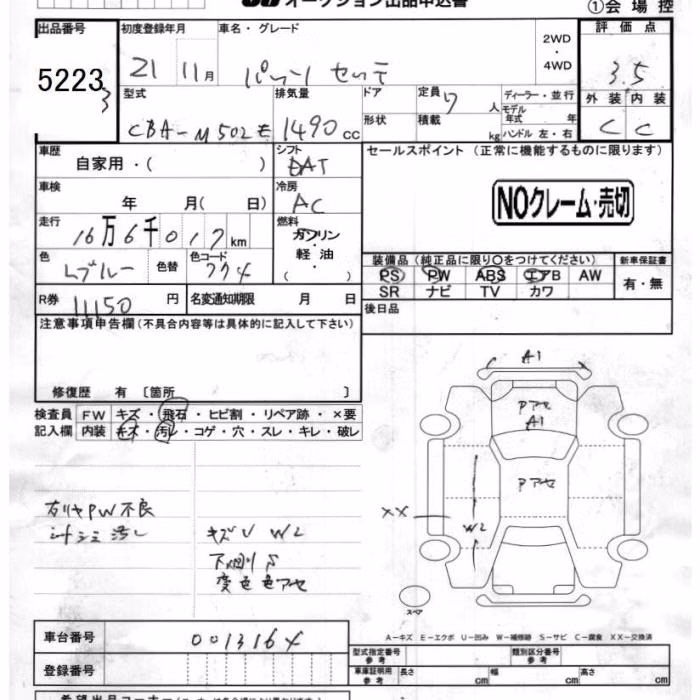 オークション出品申込書
①会場控
出品番号 初度登録年月 車名・グレード 2WD・4WD 評価点
5223
3
21年 11月 パッソ セッテ 3.5
型式 排気量 ドア 定員 7人 ディーラー・並行 外装 内装
モデル年式 年
CBA-M502E 1490cc 形状 積載 kg ハンドル 左・右 C C
車歴 自家用・( ) シフト DAT セールスポイント (正常に機能するものに限ります)
車検 年 月( 日) 冷房 AC
NOクレーム・売切
走行 16万6千017km 燃料 ガソリン・軽油・( )
色 Lブルー 色替 色コード 774
装備品 (純正品に限り○をつけてください) 新車保証書
PS PW ABS エアB AW 有・無
SR ナビ TV カワ
R券 11150円 名変通知期限 月 日 後日品
注意事項申告欄(不具合内容等は具体的に記入して下さい)
修復歴 有 〔箇所 〕
検査員記入欄 FW キズ・飛石・ヒビ割・リペア跡・×要
内装 キズ・汚レ・コゲ・穴・スレ・キレ・破レ
A1
Pアセ
A1
Pアセ
XX
W2
スペア
右リヤPW不良
キズU W2
変色色アセ
A-キズ E-エクボ U-凹み W-補修跡 S-サビ C-腐食 XX-交換済
車台番号 0013164
登録番号
型式指定番号 参考 類別区分番号 参考
車庫証明用 参考 長さ cm 幅 cm 高さ cm